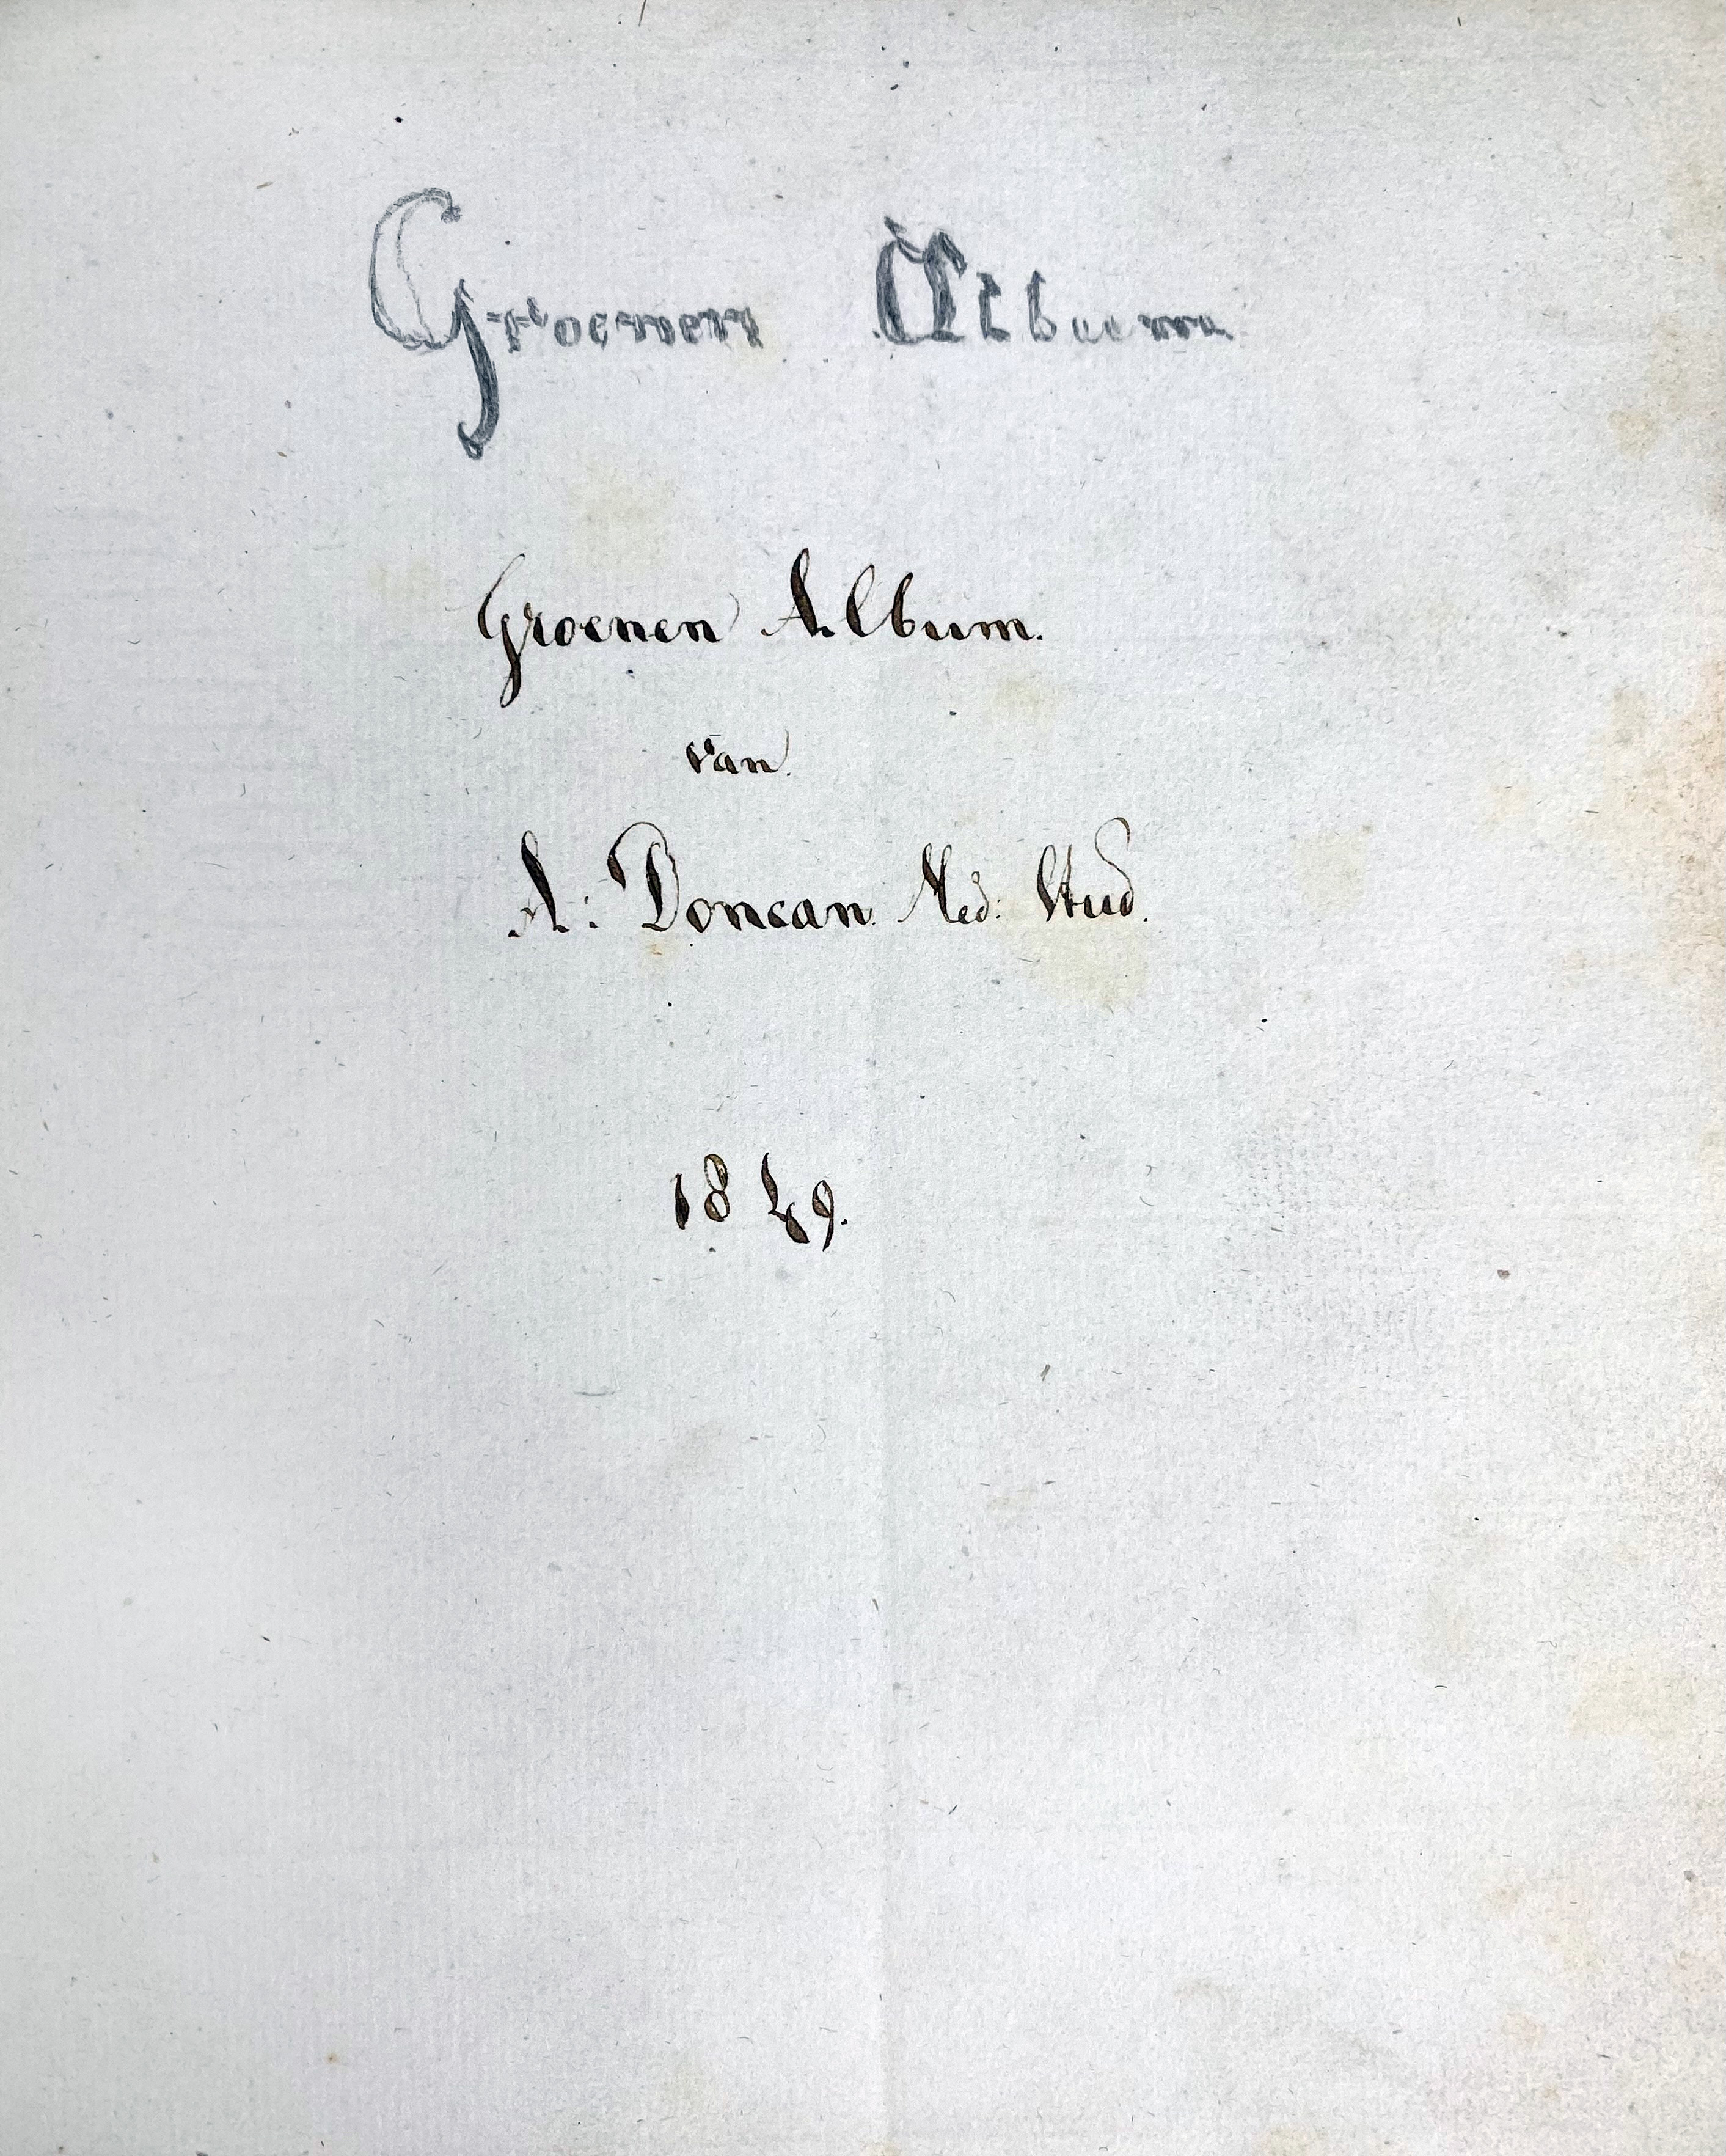 Groenen Album
Groenen Album.
van.
A: Doncan. Med: Stud.
1849.